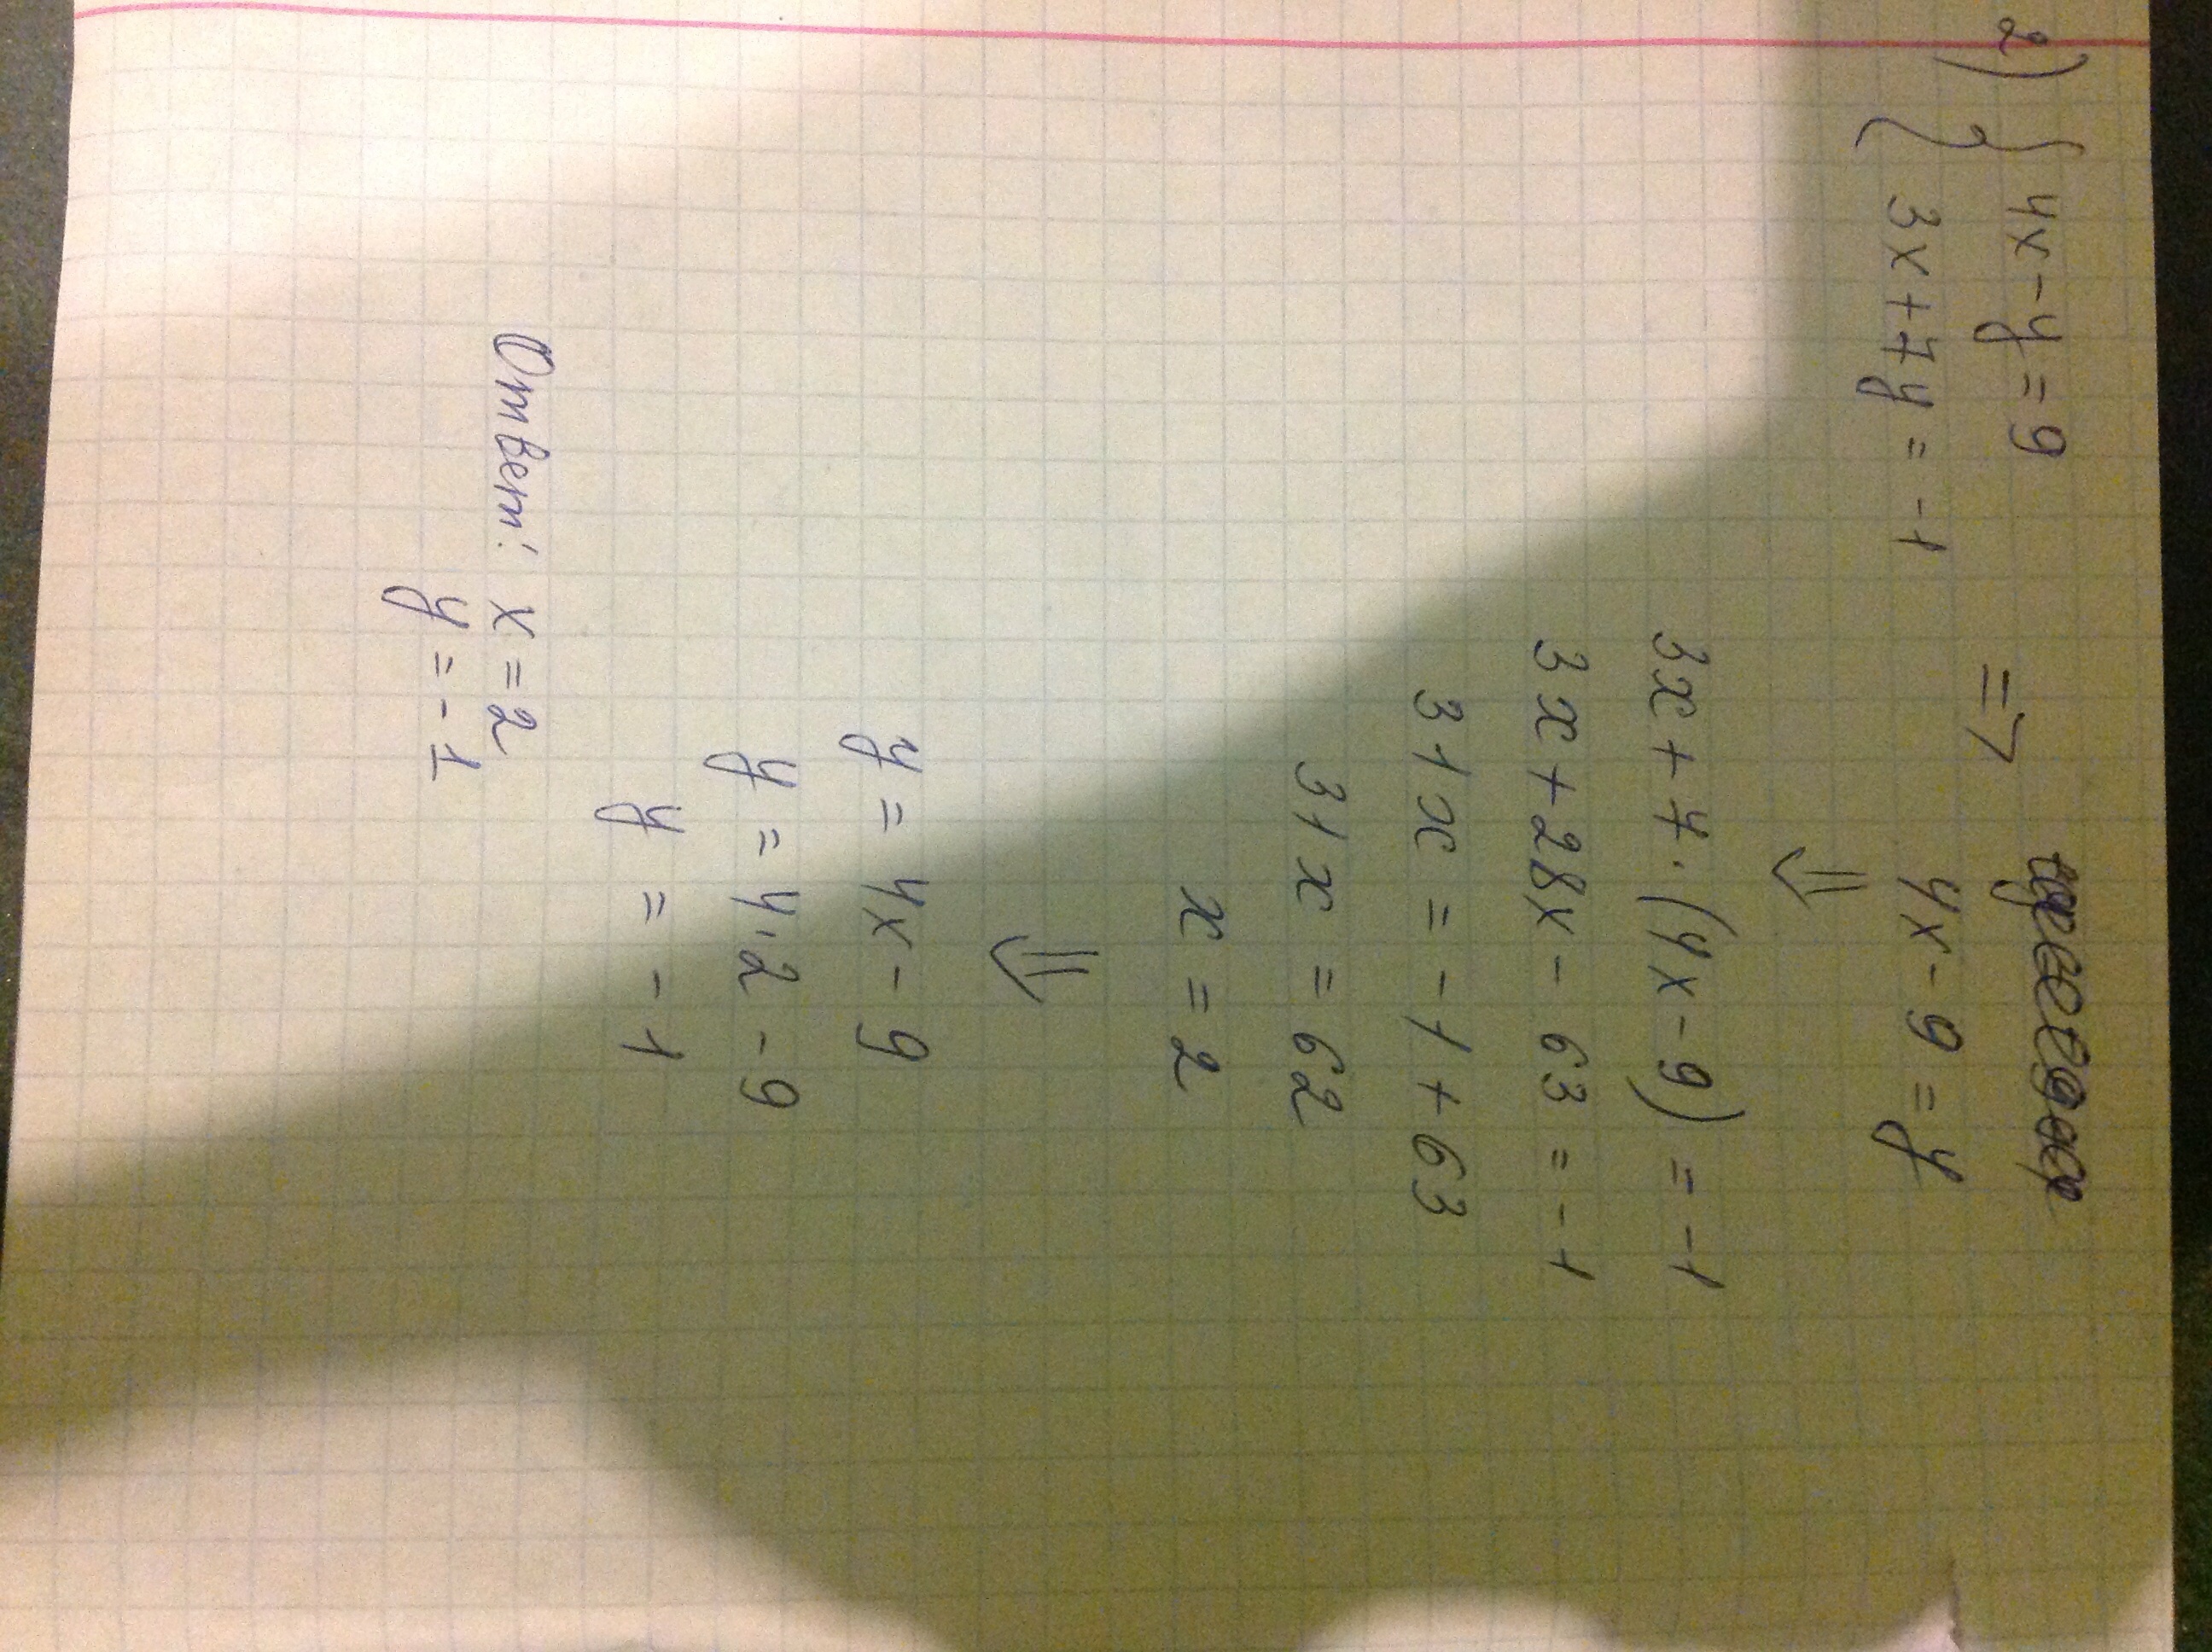 2) { 4x - y = 9
3x + 7y = -1
=> 4x - 9 = y
⇓
3x + 7 · (4x - 9) = -1
3x + 28x - 63 = -1
31x = -1 + 63
31x = 62
x = 2
⇓
y = 4x - 9
y = 4·2 - 9
y = -1
Ответ: x = 2
y = -1